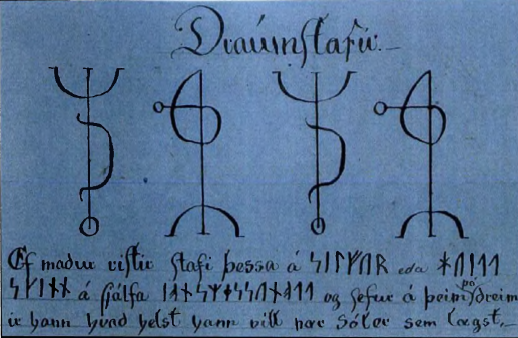 Draúmstafir.-
Ef madur ristir stafi þessa á ᛋᛁᛚᚠᚢᚱ eda ᚼᚢᛁᛐᛐ
ᛋᚴᛁᚾᚾ á sjálfa ᛁᚮᚾᛋᛘᛂᛋᛋᚢᚾᚮᛐᛐ og sefur á þeim þá dreim
ir hann hvad helst hann vill nær Sóler sem lægst.-